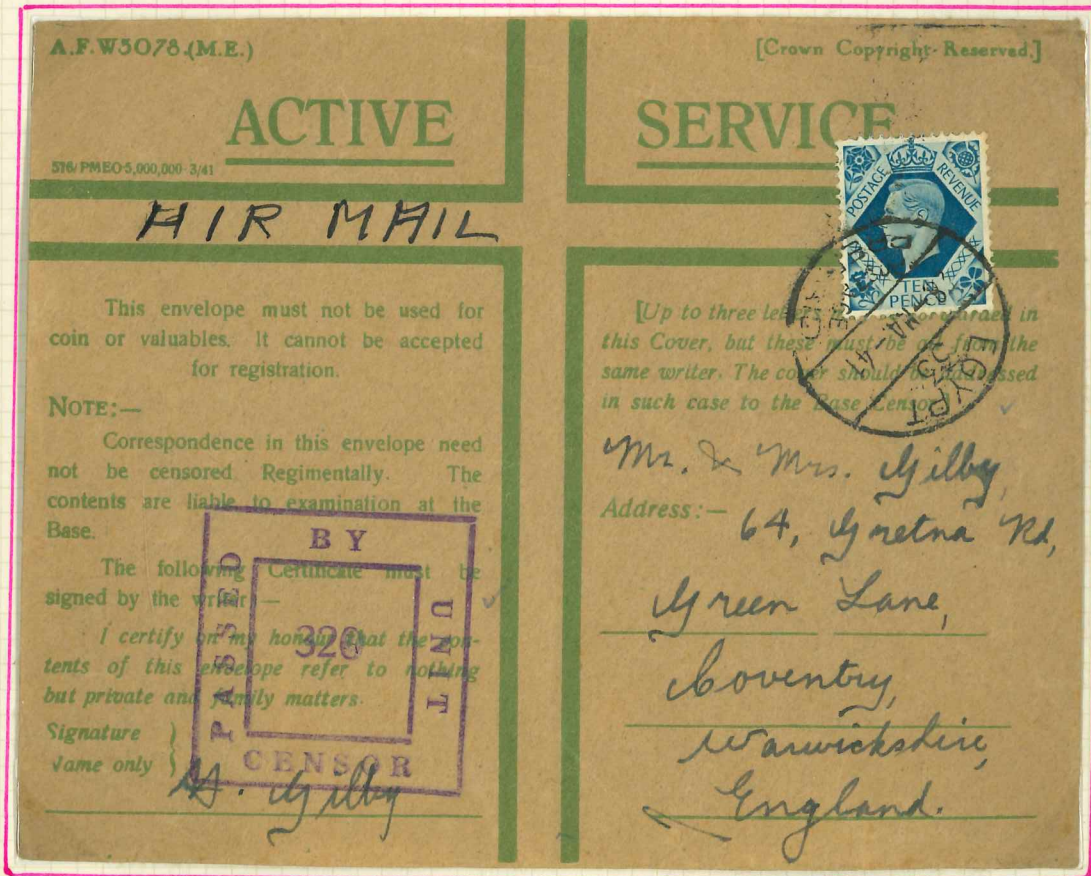 A.F.W3078.(M.E.)
[Crown Copyright Reserved.]
ACTIVE SERVICE
576/PMEO-5,000,000-3/41
POSTAGE REVENUE
TEN
PENCE
AIR MAIL
EGYPT
41
This envelope must not be used for
coin or valuables. It cannot be accepted
for registration.
NOTE:—
Correspondence in this envelope need
not be censored Regimentally. The
contents are liable to examination at the
Base.
The following Certificate must be
signed by the writer:—
I certify on my honour that the con-
tents of this envelope refer to nothing
but private and family matters.
Signature
Name only
H. Gilby
PASSED BY UNIT CENSOR
326
[Up to three letters in
this Cover, but these must be all from the
same writer. The cover should be addressed
in such case to the Base Censor.
Mr. & Mrs. Gilby,
Address:—
64, Gretna Rd,
Green Lane,
Coventry,
Warwickshire,
England.